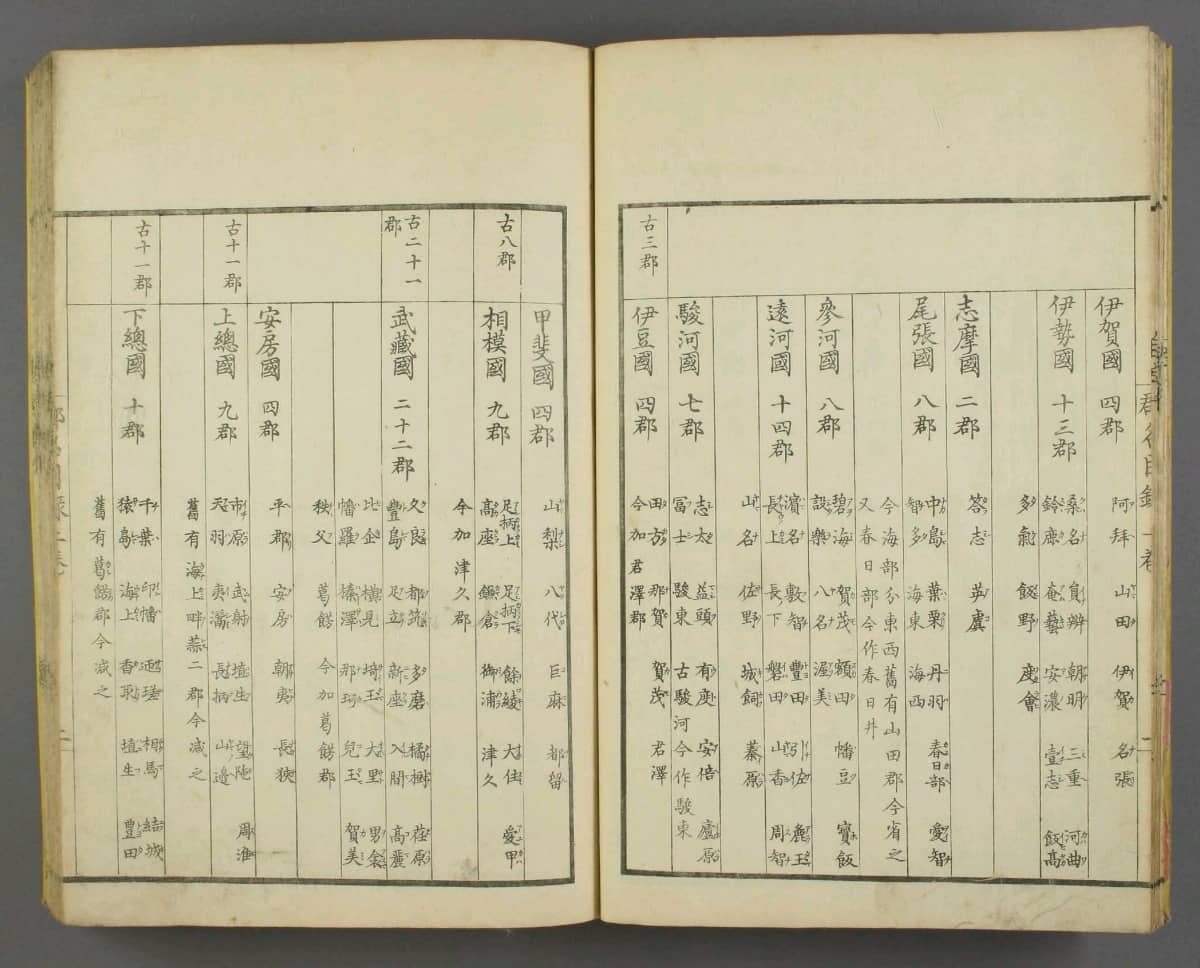 伊賀國 四郡 阿拜 山田 伊賀 名張
伊勢國 十三郡 桑名 員辨 朝明 三重 河曲
鈴鹿 奄藝 安濃 壹志 飯高
多氣 飯野 度會
志摩國 二郡 答志 英虞
尾張國 八郡 中島 葉栗 丹羽 春日部 愛智
智多 海東 海西
今海部分東西舊有山田郡今省之
又春日部今作春日井
參河國 八郡 碧海 賀茂 額田 幡豆 寶飯
設樂 八名 渥美
遠河國 十四郡 濱名 敷智 豐田 引佐 麁玉
長上 長下 磐田 山香 周智
山名 佐野 城飼 蓁原
駿河國 七郡 志太 益頭 有度 安倍 廬原
冨士 駿東 古駿河今作駿東
古三郡
伊豆國 四郡 田方 那賀 賀茂 君澤
今加君澤郡
甲斐國 四郡 山梨 八代 巨麻 都留
古八郡
相模國 九郡 足柄上 足柄下 餘綾 大住 愛甲
高座 鎌倉 御浦 津久
今加津久郡
古二十一郡
武藏國 二十二郡 久良 都筑 多磨 橘樹 荏原
豐島 足立 新座 入間 高麗
比企 横見 埼玉 大里 男衾
幡羅 榛澤 那珂 兒玉 賀美
秩父 葛餝 今加葛餝郡
安房國 四郡 平郡 安房 朝夷 長狹
古十一郡
上總國 九郡 市原 武射 埴生 望陀 周淮
天羽 夷灊 長柄 山邊
舊有海上畔蒜二郡今减之
古十一郡
下總國 十郡 千葉 印幡 迊瑳 相馬 結城
猿島 海上 香取 埴生 豐田
舊有葛餝郡今减之